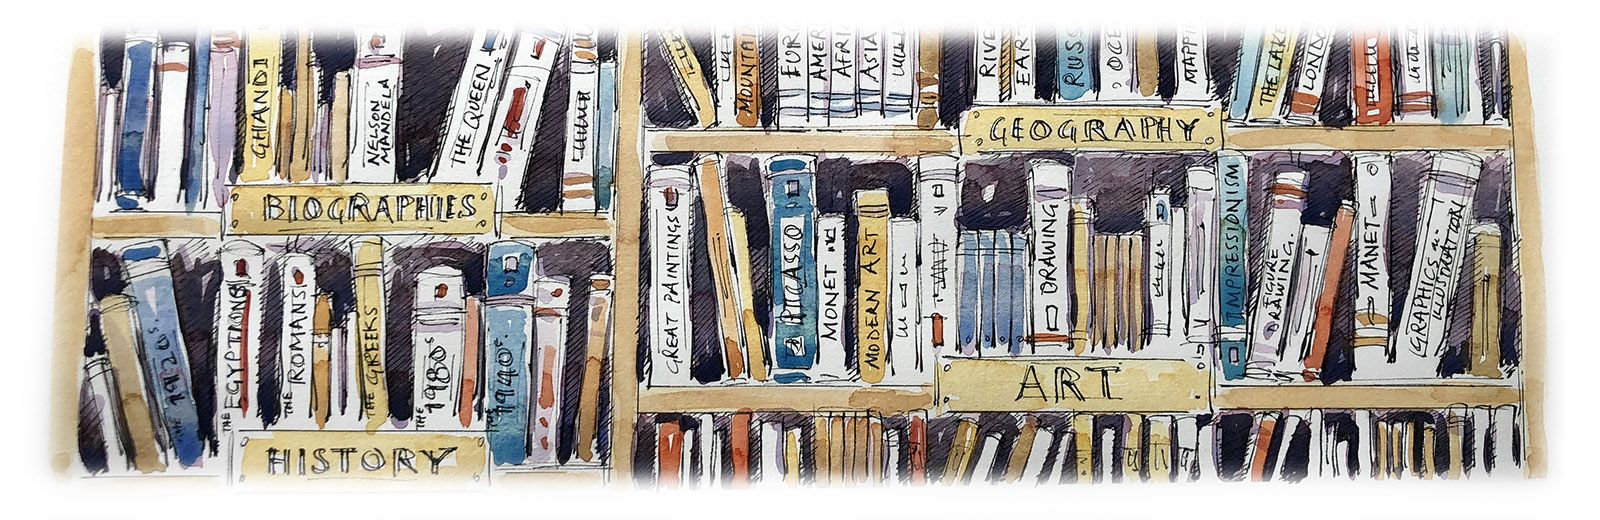 GHANDI
NELSON
MANDELA
THE QUEEN
BIOGRAPHIES
THE 1920s
THE EGYPTIONS
THE ROMANS
THE GREEKS
THE 1980s
THE 1940s
HISTORY
MOUNTAI
EUR
AMER
AFRI
ASIA
RIVE
EART
RUSS
OCE
MAPPI
THE LAKE
LONDO
GEOGRAPHY
GREAT PAINTINGS
PICASSO
MONET
MODERN ART
DRAWING
IMPRESSIONISM
FIGURE
DRAWING.
MANET
GRAPHICS &
ILLUSTRATION
ART